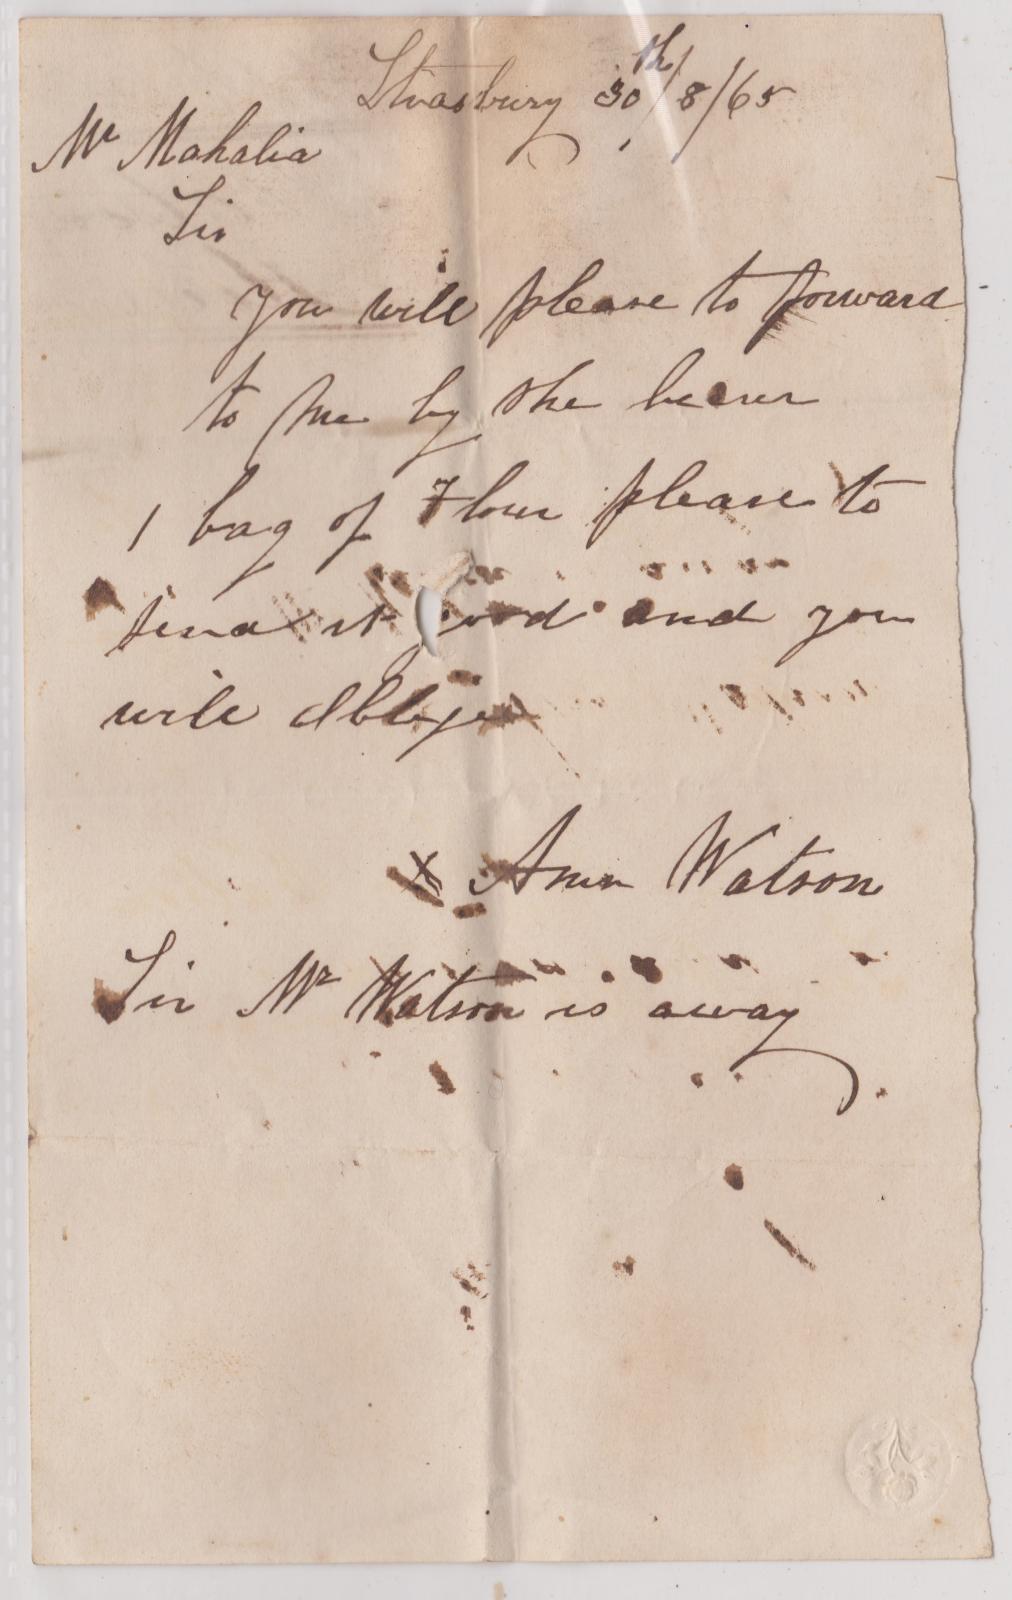 Strasbury 30th/8/65
Mr Mahalia
Sir
you will please to forward
to Me by the bearer
1 bag of Flour please to
send it good and you
will Oblige
x Ann Watson
Sir Mr Watson is away